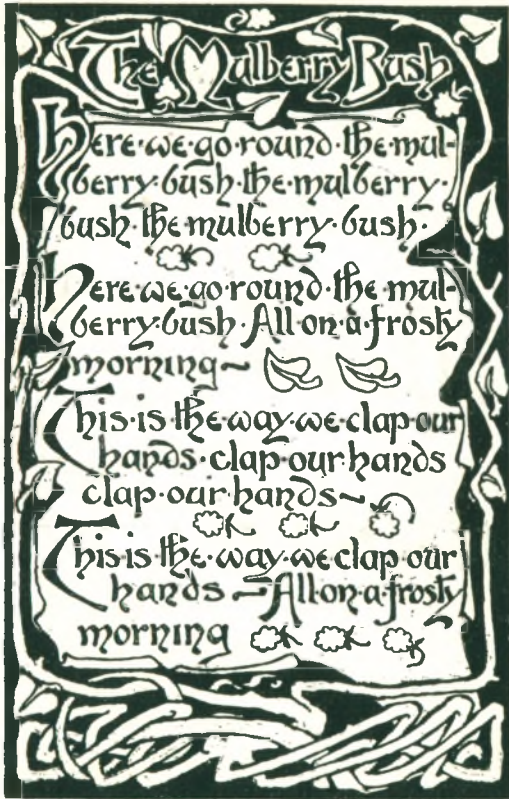 The Mulberry Bush
Here·we·go·round·the·mul-
berry·bush·the·mulberry·
bush·the mulberry·bush·
Here·we·go·round·the mul-
berry·bush·All·on·a·frosty
morning~
This·is·the·way·we·clap·our
hands·clap·our·hands
clap·our·hands~
This·is·the·way·we·clap·our
hands~All·on·a·frosty
morning